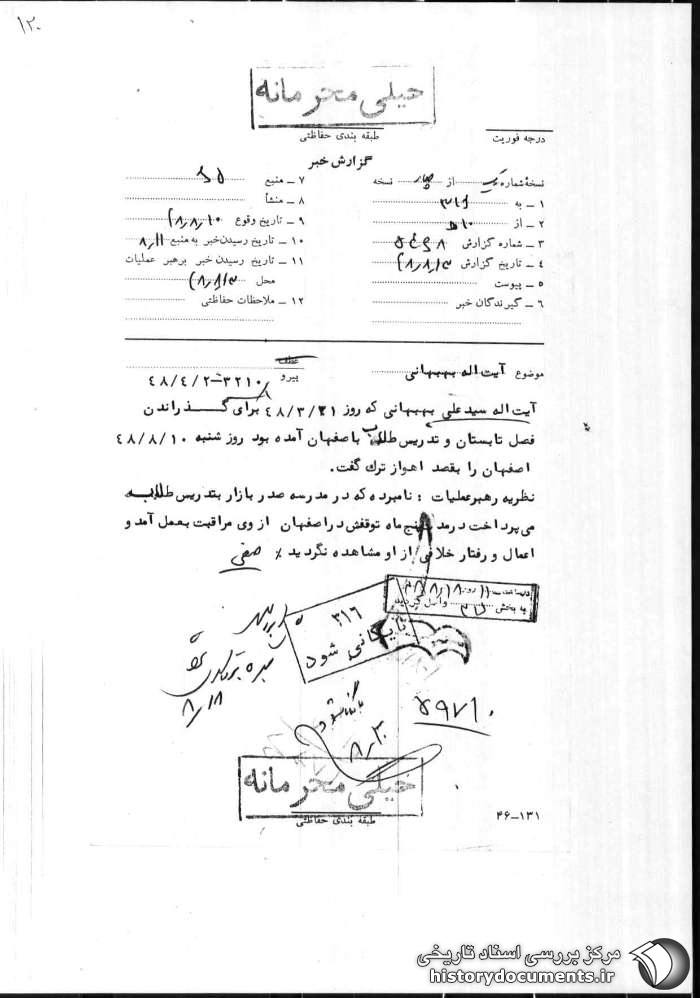 ۱۲۰
خیلی محرمانه
طبقه بندی حفاظتی
درجه فوریت
گزارش خبر
نسخهٔ شماره یک از چهار نسخه
۱ ـ به ۳۱۶
۲ ـ از ۱۰ ه
۳ ـ شماره گزارش
۴ ـ تاریخ گزارش
۵ ـ پیوست
۶ ـ گیرندگان خبر
۷ ـ منبع
۸ ـ منشأ
۹ ـ تاریخ وقوع ۴۸/۸/۱۰
۱۰ ـ تاریخ رسیدن خبر به منبع ۸/۱۱
۱۱ ـ تاریخ رسیدن خبر برهبر عملیات
محل
۱۲ ـ ملاحظات حفاظتی
موضوع آیت اله بهبهانی
عطف
پیرو ۳۲۱۰-۴۸/۴/۲
آیت اله سیدعلی بهبهانی که روز ۴۸/۳/۳۱ برای گذراندن
فصل تابستان و تدریس طلاب باصفهان آمده بود روز شنبه ۴۸/۸/۱۰
اصفهان را بقصد اهواز ترک گفت.
نظریه رهبرعملیات : نامبرده که در مدرسه صدر بازار بتدریس طلاب
می پرداخت درمدت پنج ماه توقفش در اصفهان از وی مراقبت بعمل آمد و
اعمال و رفتار خلافی از او مشاهده نگردید ٪ صفی
در ساعت ۱۱ روز ۴۸/۸/۱۸
به بخش ۳۱۶ واصل گردید
۳۱۶
بایگانی شود
۸/۱۸
بایگانی شود
۸/۲۰
خیلی محرمانه
طبقه بندی حفاظتی
۴۶-۱۳۱
مرکز بررسی اسناد تاریخی
historydocuments.ir